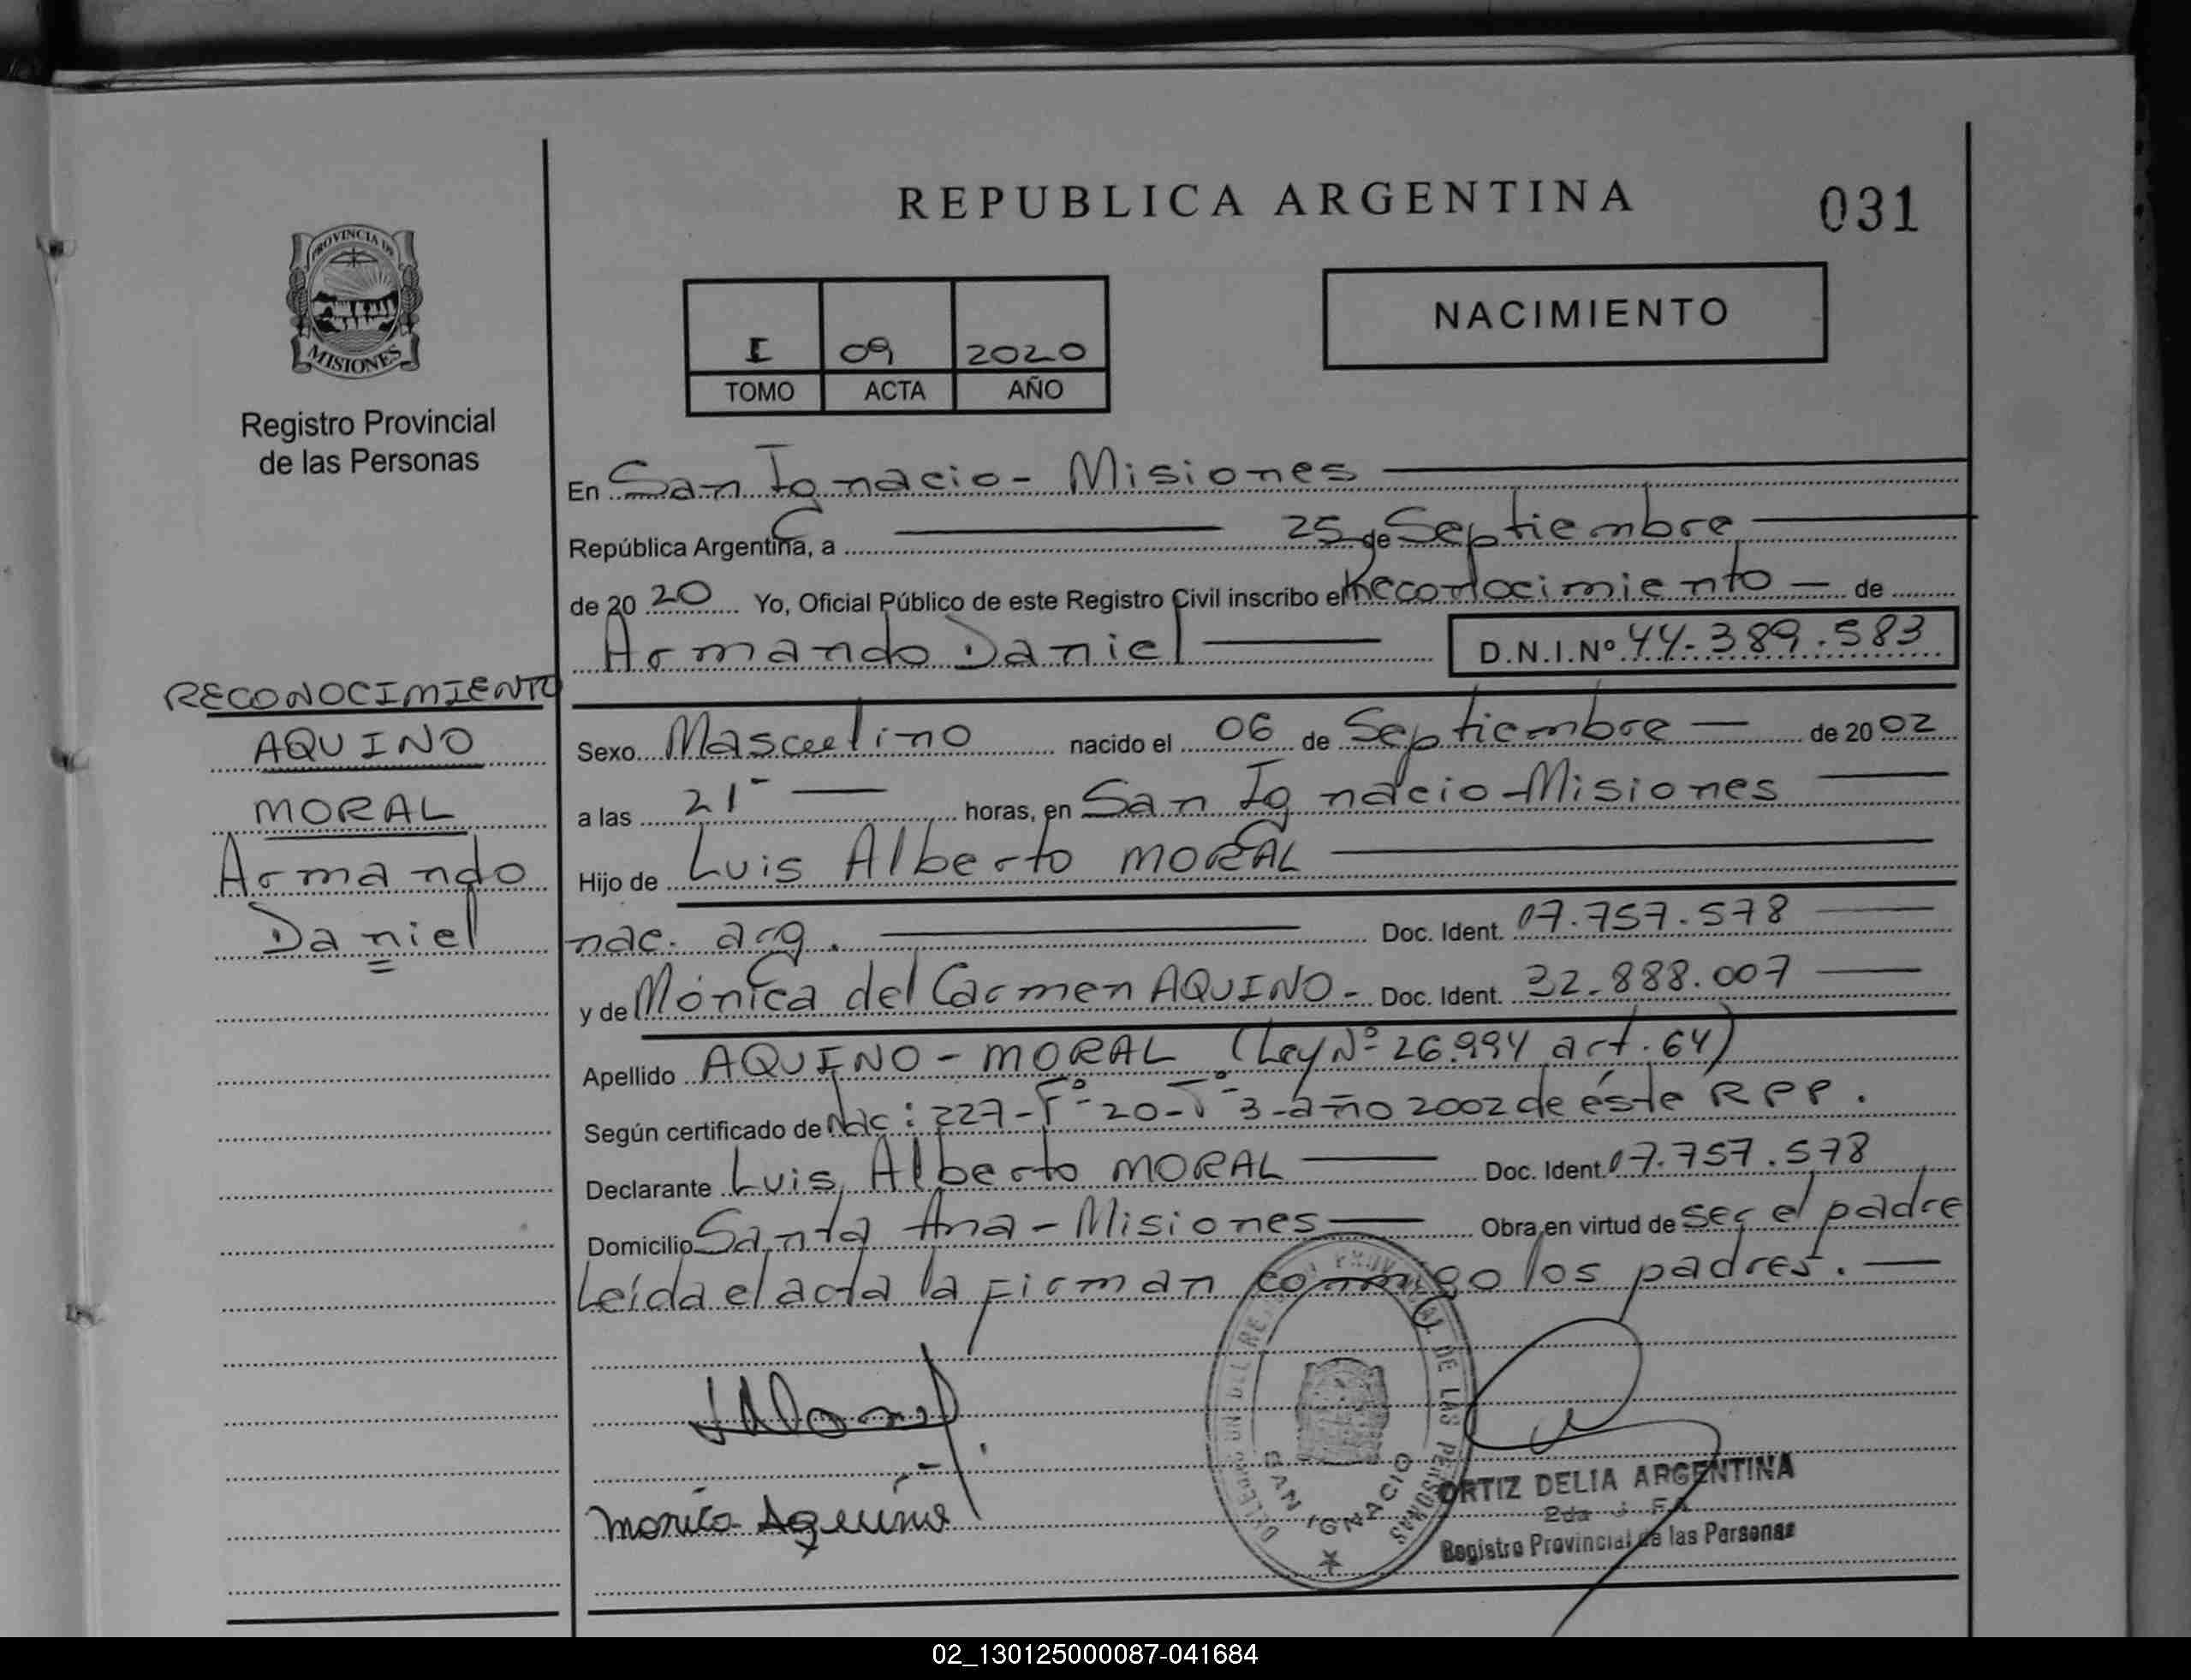 REPUBLICA ARGENTINA
031
PROVINCIA DE
MISIONES
Registro Provincial
de las Personas
I 09 2020
TOMO ACTA AÑO
NACIMIENTO
En San Ignacio - Misiones
República Argentina, a 25 de Septiembre
de 20 20 Yo, Oficial Público de este Registro Civil inscribo el Reconocimiento de
Armando Daniel D.N.I.Nº 44.389.583
RECONOCIMIENTO
AQUINO
MORAL
Armando
Daniel
Sexo Masculino nacido el 06 de Septiembre de 20 02
a las 21 horas, en San Ignacio - Misiones
Hijo de Luis Alberto MORAL
nac. arg. Doc. Ident. 07.757.578
y de Mónica del Carmen AQUINO - Doc. Ident. 32.888.007
Apellido AQUINO - MORAL (Ley Nº 26.994 art. 64)
Según certificado de Nac: 227 - Fº 20 - Tº 3 - año 2002 de éste RPP.
Declarante Luis Alberto MORAL Doc. Ident. 07.757.578
Domicilio Santa Ana - Misiones Obra en virtud de ser el padre
Leída el acta la firman conmigo los padres.
Monica Aquino
SAN IGNACIO
ORTIZ DELIA ARGENTINA
Registro Provincial de las Personas
02_130125000087-041684